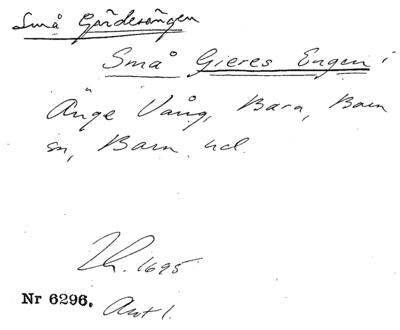 Små Gärdesängen
Små Gieres Engen i
Änge Vång, Bara, Bara
sn, Bara hd.
Lh. 1695
Nr 6296. Akt 1.